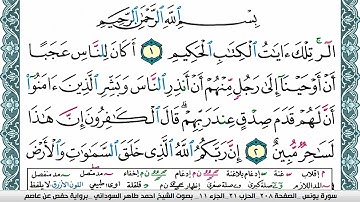 بِسْمِ اللَّهِ الرَّحْمَٰنِ الرَّحِيمِ
الٓر ۚ تِلْكَ ءَايَٰتُ الْكِتَٰبِ الْحَكِيمِ ١ أَكَانَ لِلنَّاسِ عَجَبًا
أَنْ أَوْحَيْنَآ إِلَىٰ رَجُلٍ مِّنْهُمْ أَنْ أَنذِرِ النَّاسَ وَبَشِّرِ الَّذِينَ ءَامَنُوٓا
أَنَّ لَهُمْ قَدَمَ صِدْقٍ عِندَ رَبِّهِمْ ۗ قَالَ الْكَٰفِرُونَ إِنَّ هَٰذَا
لَسَٰحِرٌ مُّبِينٌ ٢ إِنَّ رَبَّكُمُ اللَّهُ الَّذِي خَلَقَ السَّمَٰوَٰتِ وَالْأَرْضَ
سورة يونس - الصفحة ٢٠٨ - الحزب ٢١ - الجزء ١١ - بصوت الشيخ أحمد طاهر السوداني - برواية حفص عن عاصم